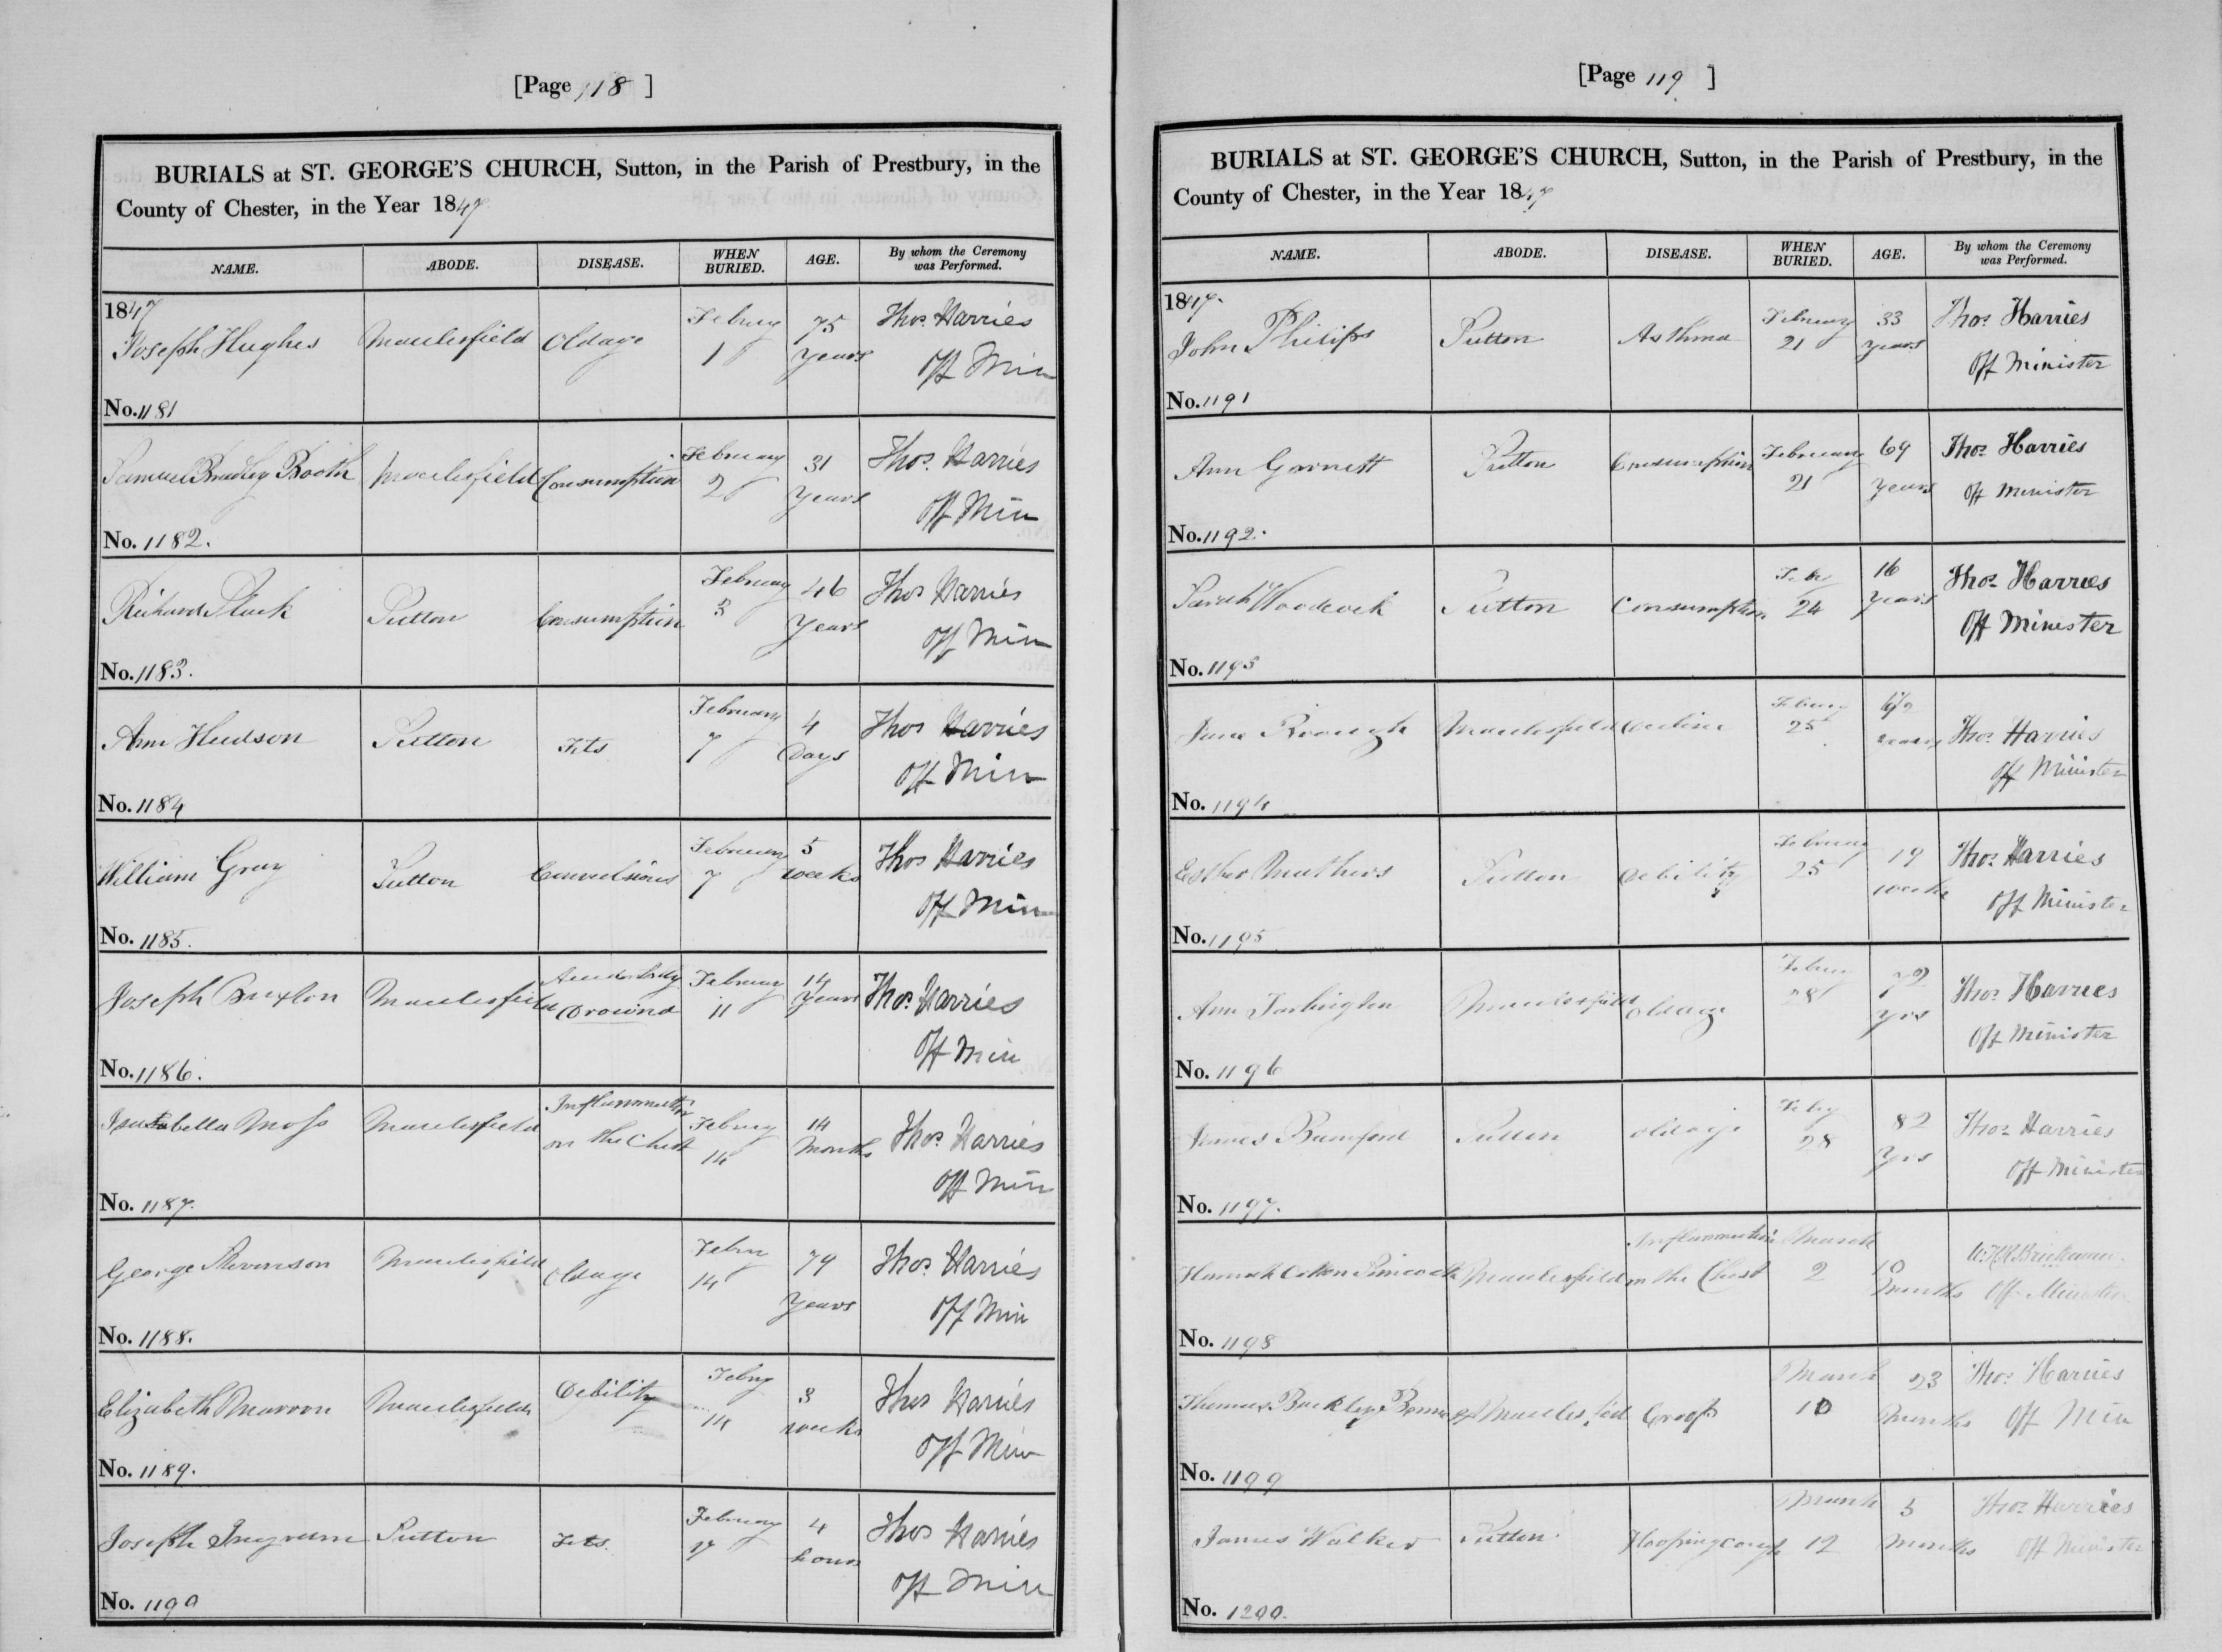 [Page 118 ]
BURIALS at ST. GEORGE'S CHURCH, Sutton, in the Parish of Prestbury, in the
County of Chester, in the Year 1847
NAME. ABODE. DISEASE. WHEN BURIED. AGE. By whom the Ceremony was Performed.
1847
Joseph Hughes Macclesfield Oldage Februy 1 75 years Thos. Harries Off Min
No. 1181
Samuel Bradley Booth Macclesfield Consumption February 2 31 years Thos. Harries Off Min
No. 1182.
Richard Slack Sutton Consumption February 3 46 Years Thos Harries Off Min
No. 1183.
Ann Hudson Sutton Fits February 7 4 Days Thos Harries Off Min
No. 1184
William Gray Sutton Convulsions February 7 5 weeks Thos Harries Off Min
No. 1185.
Joseph Buxton Macclesfield Drowind February 11 14 Years Thos. Harries Off Min
No. 1186.
Isabella Moss Macclesfield Inflammation on the Chest Februy 14 14 Months Thos. Harries Off Min
No. 1187.
George Stevenson Macclesfield Oldage Febru 14 79 Years Thos. Harries Off Min
No. 1188.
Elizabeth Macclesfield Debility Febry 14 3 weeks Thos Harries Off Min
No. 1189.
Joseph Ingram Sutton Fits. February 17 4 hours Thos Harries Off Min
No. 1190
[Page 119 ]
BURIALS at ST. GEORGE'S CHURCH, Sutton, in the Parish of Prestbury, in the
County of Chester, in the Year 1847
NAME. ABODE. DISEASE. WHEN BURIED. AGE. By whom the Ceremony was Performed.
1847.
John Philips Sutton Asthma February 21 33 years Thos. Harries Off Minister
No. 1191
Ann Garnett Sutton Consumption February 21 69 years Thos. Harries Off Minister
No. 1192.
Sarah Woodcock Sutton Consumption Feby 24 16 years Thos. Harries Off Minister
No. 1193
Jane Macclesfield Decline Februy 25 years Thos. Harries Off Minister
No. 1194
Esther Mathers Sutton Debility February 25 19 weeks Thos. Harries Off Minister
No. 1195
Ann Tarlington Macclesfield Oldage Februy 28 72 yrs Thos. Harries Off Minister
No. 1196
James Bamford Sutton oldage Feby 28 82 Yrs Thos. Harries Off Minister
No. 1197.
Hannah Cotton Macclesfield Inflammation on the Chest March 2 10 months Off Minister
No. 1198
Thomas Buckley Macclesfied Croop March 10 23 Months Thos. Harries Off Min
No. 1199
James Walker Sutton Hoopingcough March 12 3 Months Thos. Harries Off Minister
No. 1200.